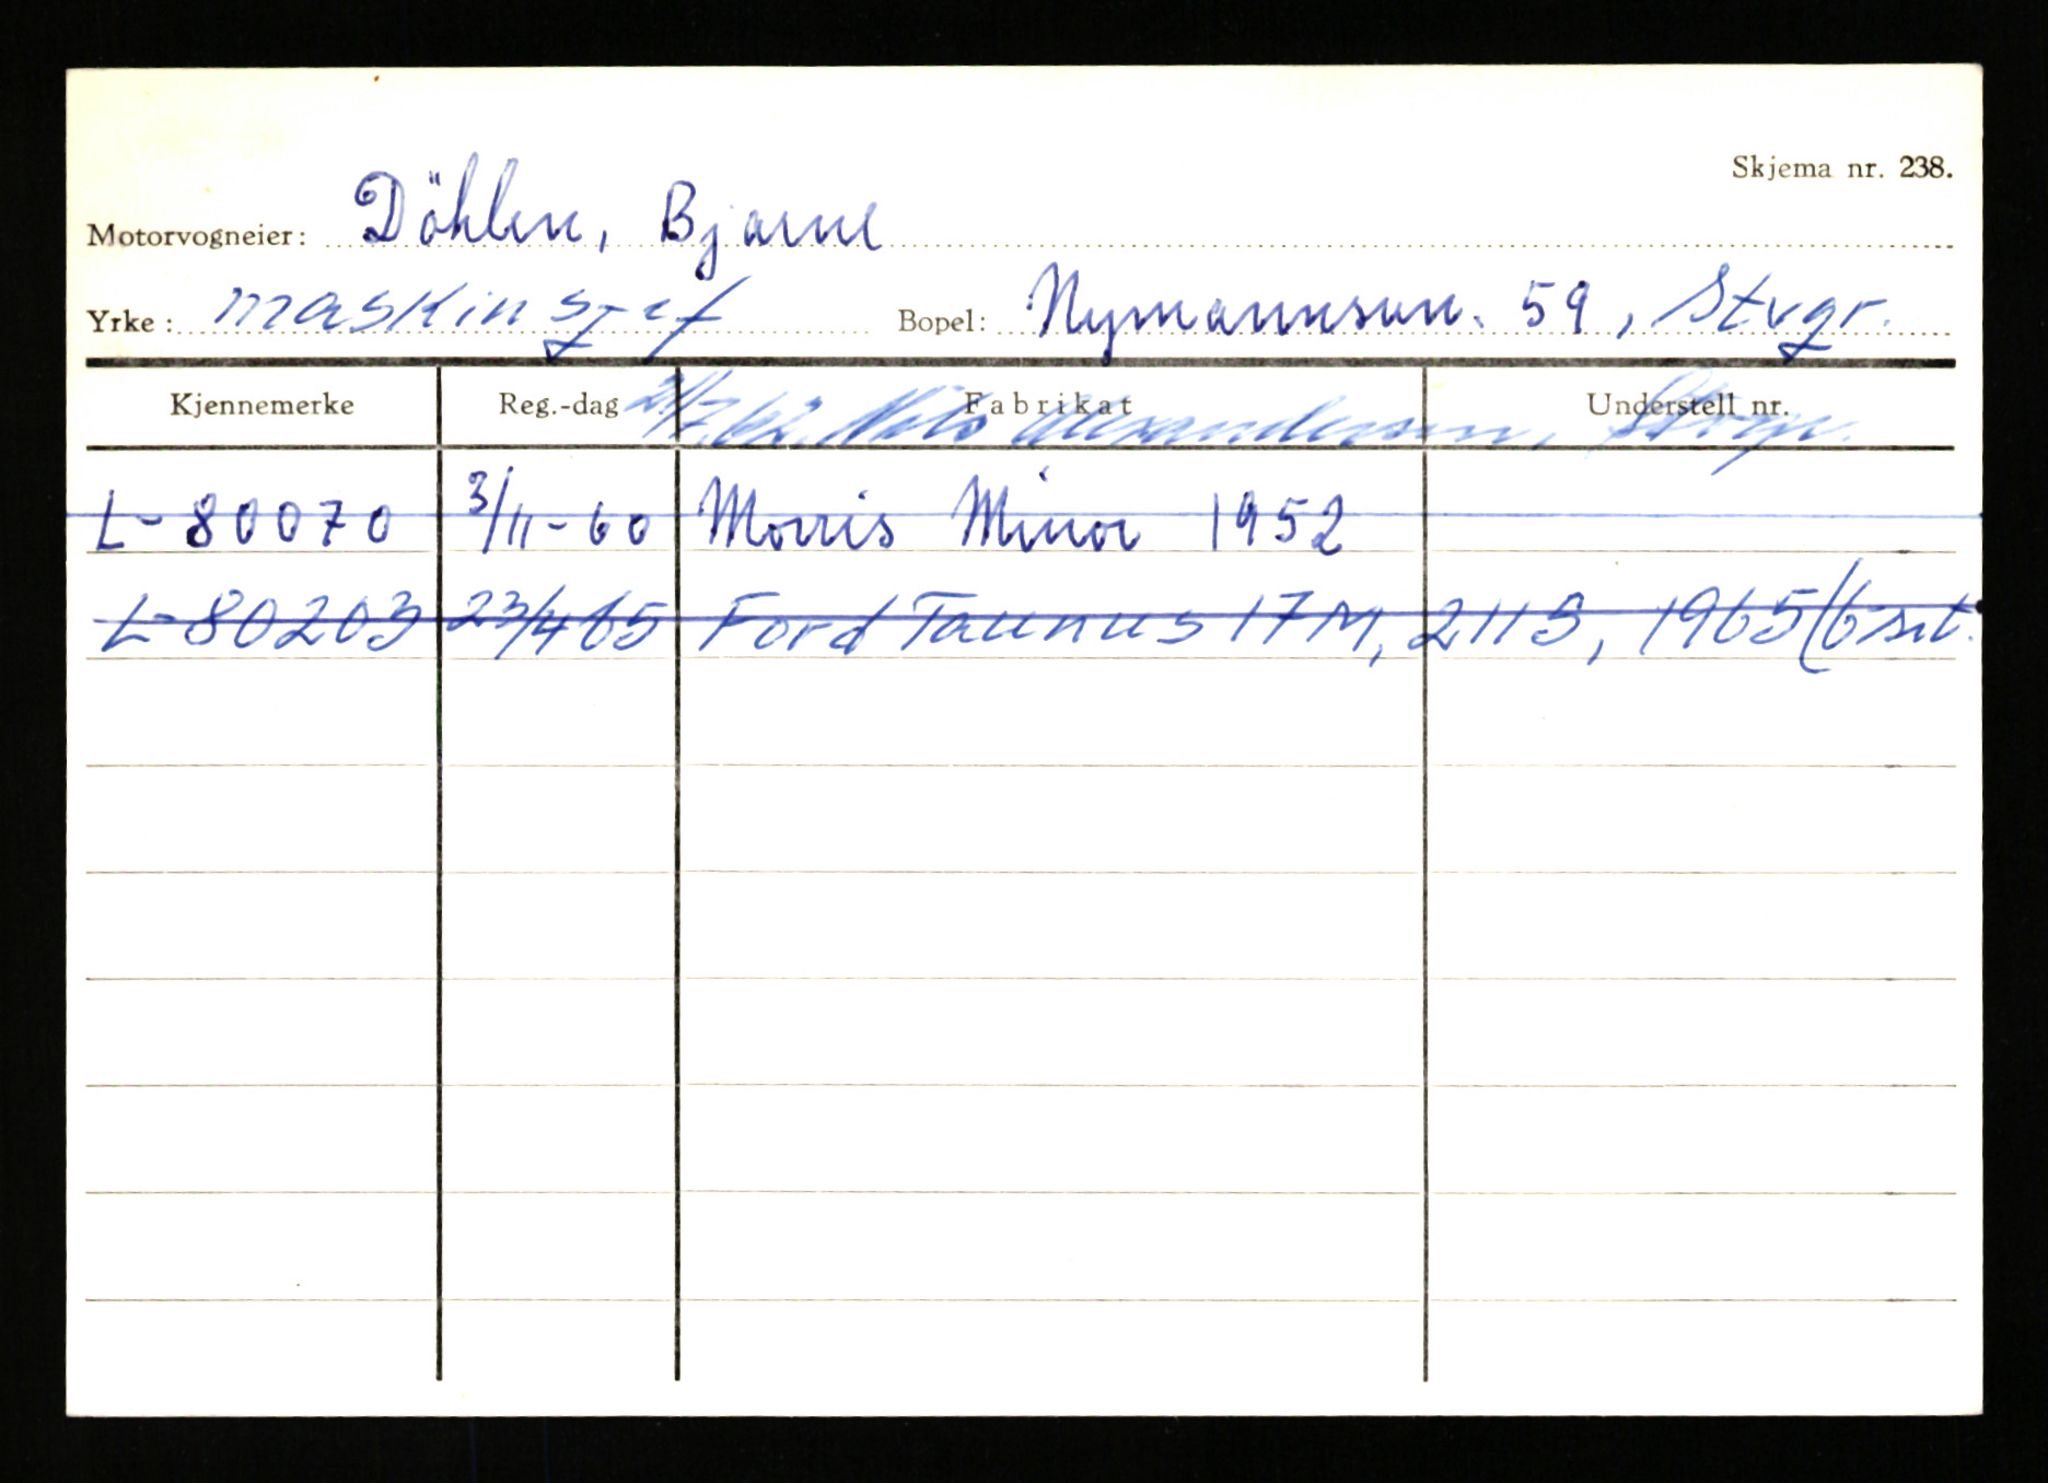 Skjema nr. 238.
Motorvogneier: Döhlen, Bjarne
Yrke: maskinsjef Bopel: Nymannsvn. 59, Stvgr.
Kjennemerke Reg.-dag Fabrikat Understell nr.
21/7.62. Nils Alexandersen, Stvgr.
L-80070 3/11-60 Morris Minor 1952
L-80203 23/4 65 Ford Taunus 17M, 211S, 1965 (6 sit.